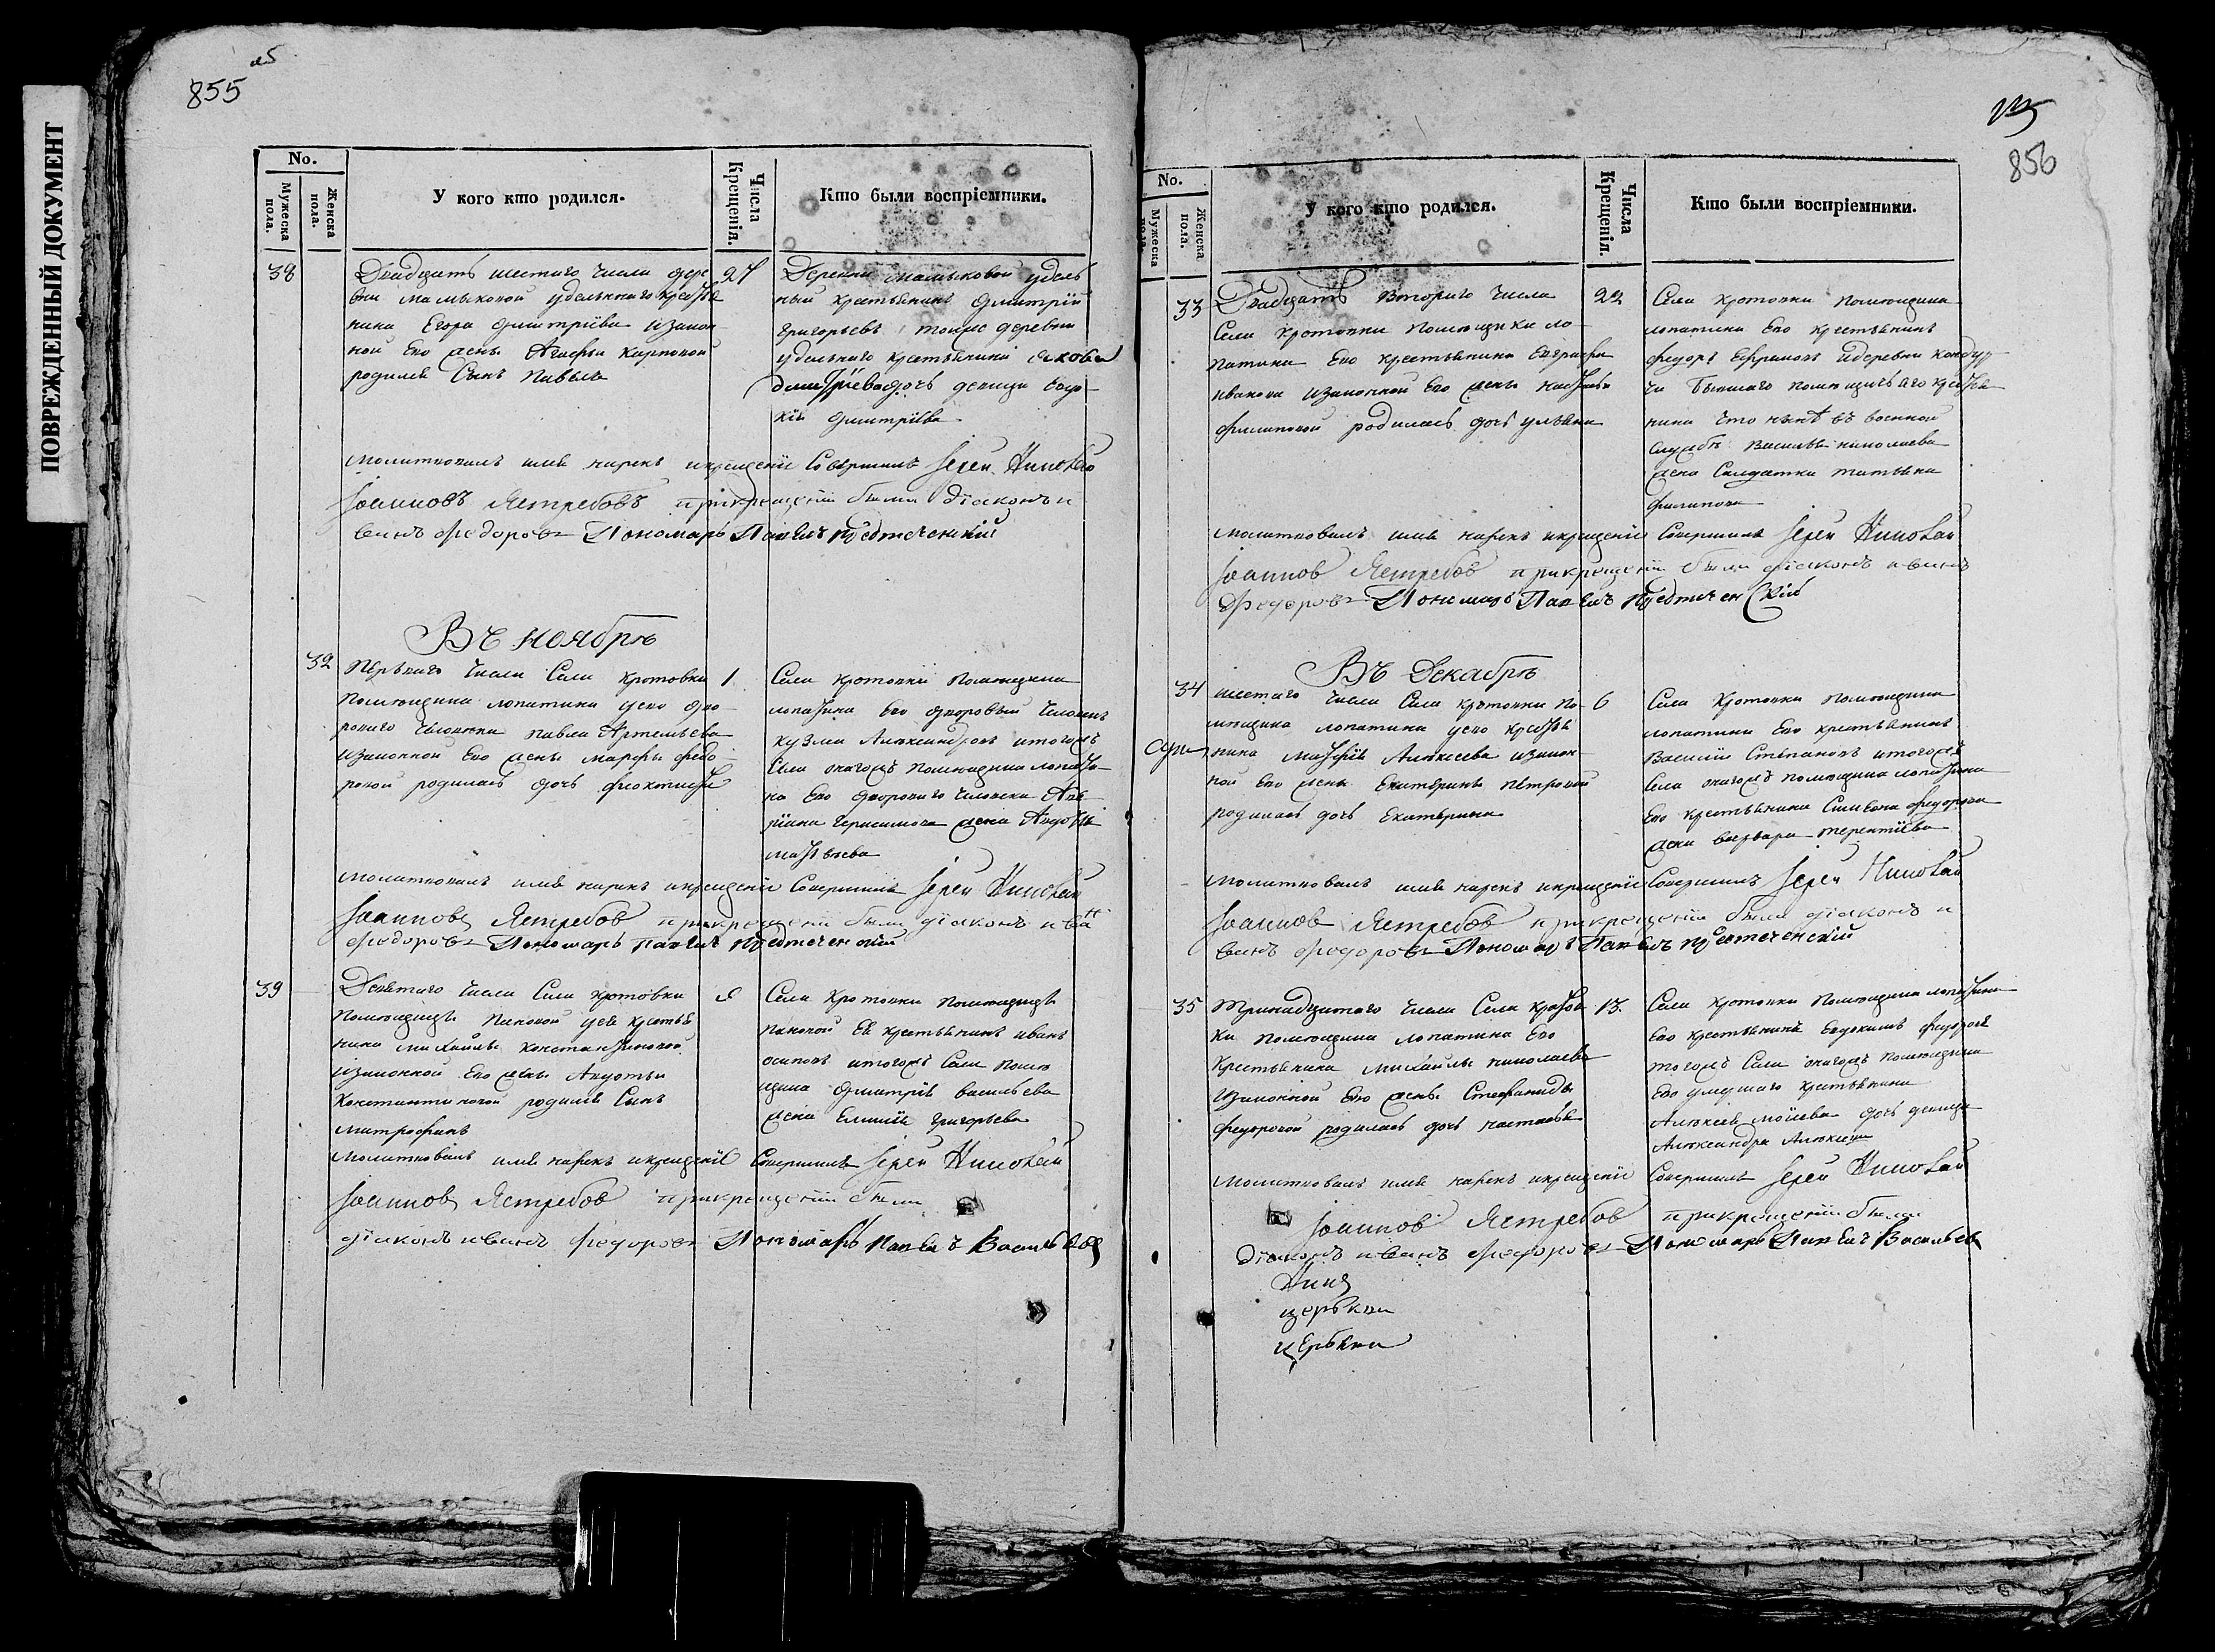 ПОВРЕЖДЕННЫЙ ДОКУМЕНТ
855
No.
Мужеска пола.
Женска пола.
У кого кто родился.
Числа Крещенія.
Кто были воспріемники.
38
Двадцать шестаго числа дере
вни Малыковой удельнаго крестья
нина Егора Дмитріева и закон
ной его жены Агафьи Карповой
родился сынъ Павелъ
27
Деревни Малыковой удель
ный крестьянинъ Дмитрій
Григорьевъ тойже деревни
удельнаго крестьянина Якова
Дмитріева дочь девица Евдо
кія Дмитріева
Молитвовалъ имя нарекъ и крещеніе совершилъ Іерей Николай
Іоанновъ Ястребовъ при крещеніи были діаконъ и
ванъ Федоровъ Пономарь Павелъ Предтеченскій
Въ ноябрѣ
32
Перьваго числа Села Кротовки
Помещика Лопатина у его дво
роваго человека Павла Артемьева
и законной его жены Марфы Федо
ровой родилась дочь Феоктиста
1
Села Кротовки Помещика
Лопатина его дворовый человекъ
Кузма Александровъ и тогожъ
села онагожъ помещика Лопати
на его двороваго человека
Герасимова жена Авдотья
Матвеева
Молитвовалъ имя нарекъ и крещеніе совершилъ Іерей Николай
Іоаннов Ястребов при крещеніи были діаконъ иван
Федоровъ Пономарь Павелъ Предтеченскій
39
Девятаго числа Села Кротовки
Помещицы Пановой у ея крестья
нина Михайлы Константиновой
и законной его жены Авдотьи
Константиновой родился сынъ
Митрофанъ
9
Села Кротовки Помещицы
Пановой ея крестьянинъ Иванъ
Осиповъ и тогожъ Села Поме
щика Дмитрія Васильева
жена Григорьева
Молитвовалъ имя нарекъ и крещеніе совершилъ Іерей Николай
Іоаннов Ястребов при крещеніи были
діаконъ иванъ Федоровъ Пономарь Павелъ Васильевъ
856
No.
Мужеска пола.
Женска пола.
У кого кто родился.
Числа Крещенія.
Кто были воспріемники.
33
Двадцать втораго числа
Села Кротовки помещика Ло
патина его крестьянина Евграфа
Иванова и законной его жены
Филиповой родилась дочь Ульяна
22
Села Кротовки помещика
Лопатина его крестьянинъ
Федоръ Ефремовъ и деревни Кондур
чи бывшаго крестья
нина что ныне въ военной
службе Василья Николаева
жена солдатка Татьяна
Филипова
Молитвовалъ имя нарекъ и крещеніе совершилъ Іерей Николай
Іоаннов Ястребов при крещеніи были діаконъ иванъ
Федоровъ Пономарь Павелъ Предтеченскій
Въ Декабрѣ
34
шестаго числа Села Кротовки по
мещика Лопатина у его крестья
нина Алексеева и закон
ной его жены Екатерины Петровой
родилась дочь Екатерина
6
Села Кротовки помещика
Лопатина его крестьянинъ
Василій Степановъ и тогожъ
Села онагожъ помещика Лопатина
его крестьянина Симеона Федорова
жена Варвара Терентіева
Молитвовалъ имя нарекъ и крещеніе совершилъ Іерей Николай
Іоаннов Ястребов при крещеніи были діаконъ и
ванъ Федоровъ Пономарь Павелъ Предтеченскій
35
Тринадцатаго числа Села Кротов
ки помещика Лопатина его
крестьянина Михайлы Николаева
и законной его жены Стефаниды
Федоровой родилась дочь Настасья
13.
Села Кротовки помещика Лопатина
его крестьянинъ Евдокимъ Федоровъ
тогожъ Села онагожъ помещика
его умершаго крестьянина
Алексея дочь девица
Александра Алексеева
Молитвовалъ имя нарекъ и крещеніе совершилъ Іерей Николай
Іоаннов Ястребов при крещеніи были
діаконъ иванъ Федоровъ Пономарь Павелъ Васильев
церькви
церькви